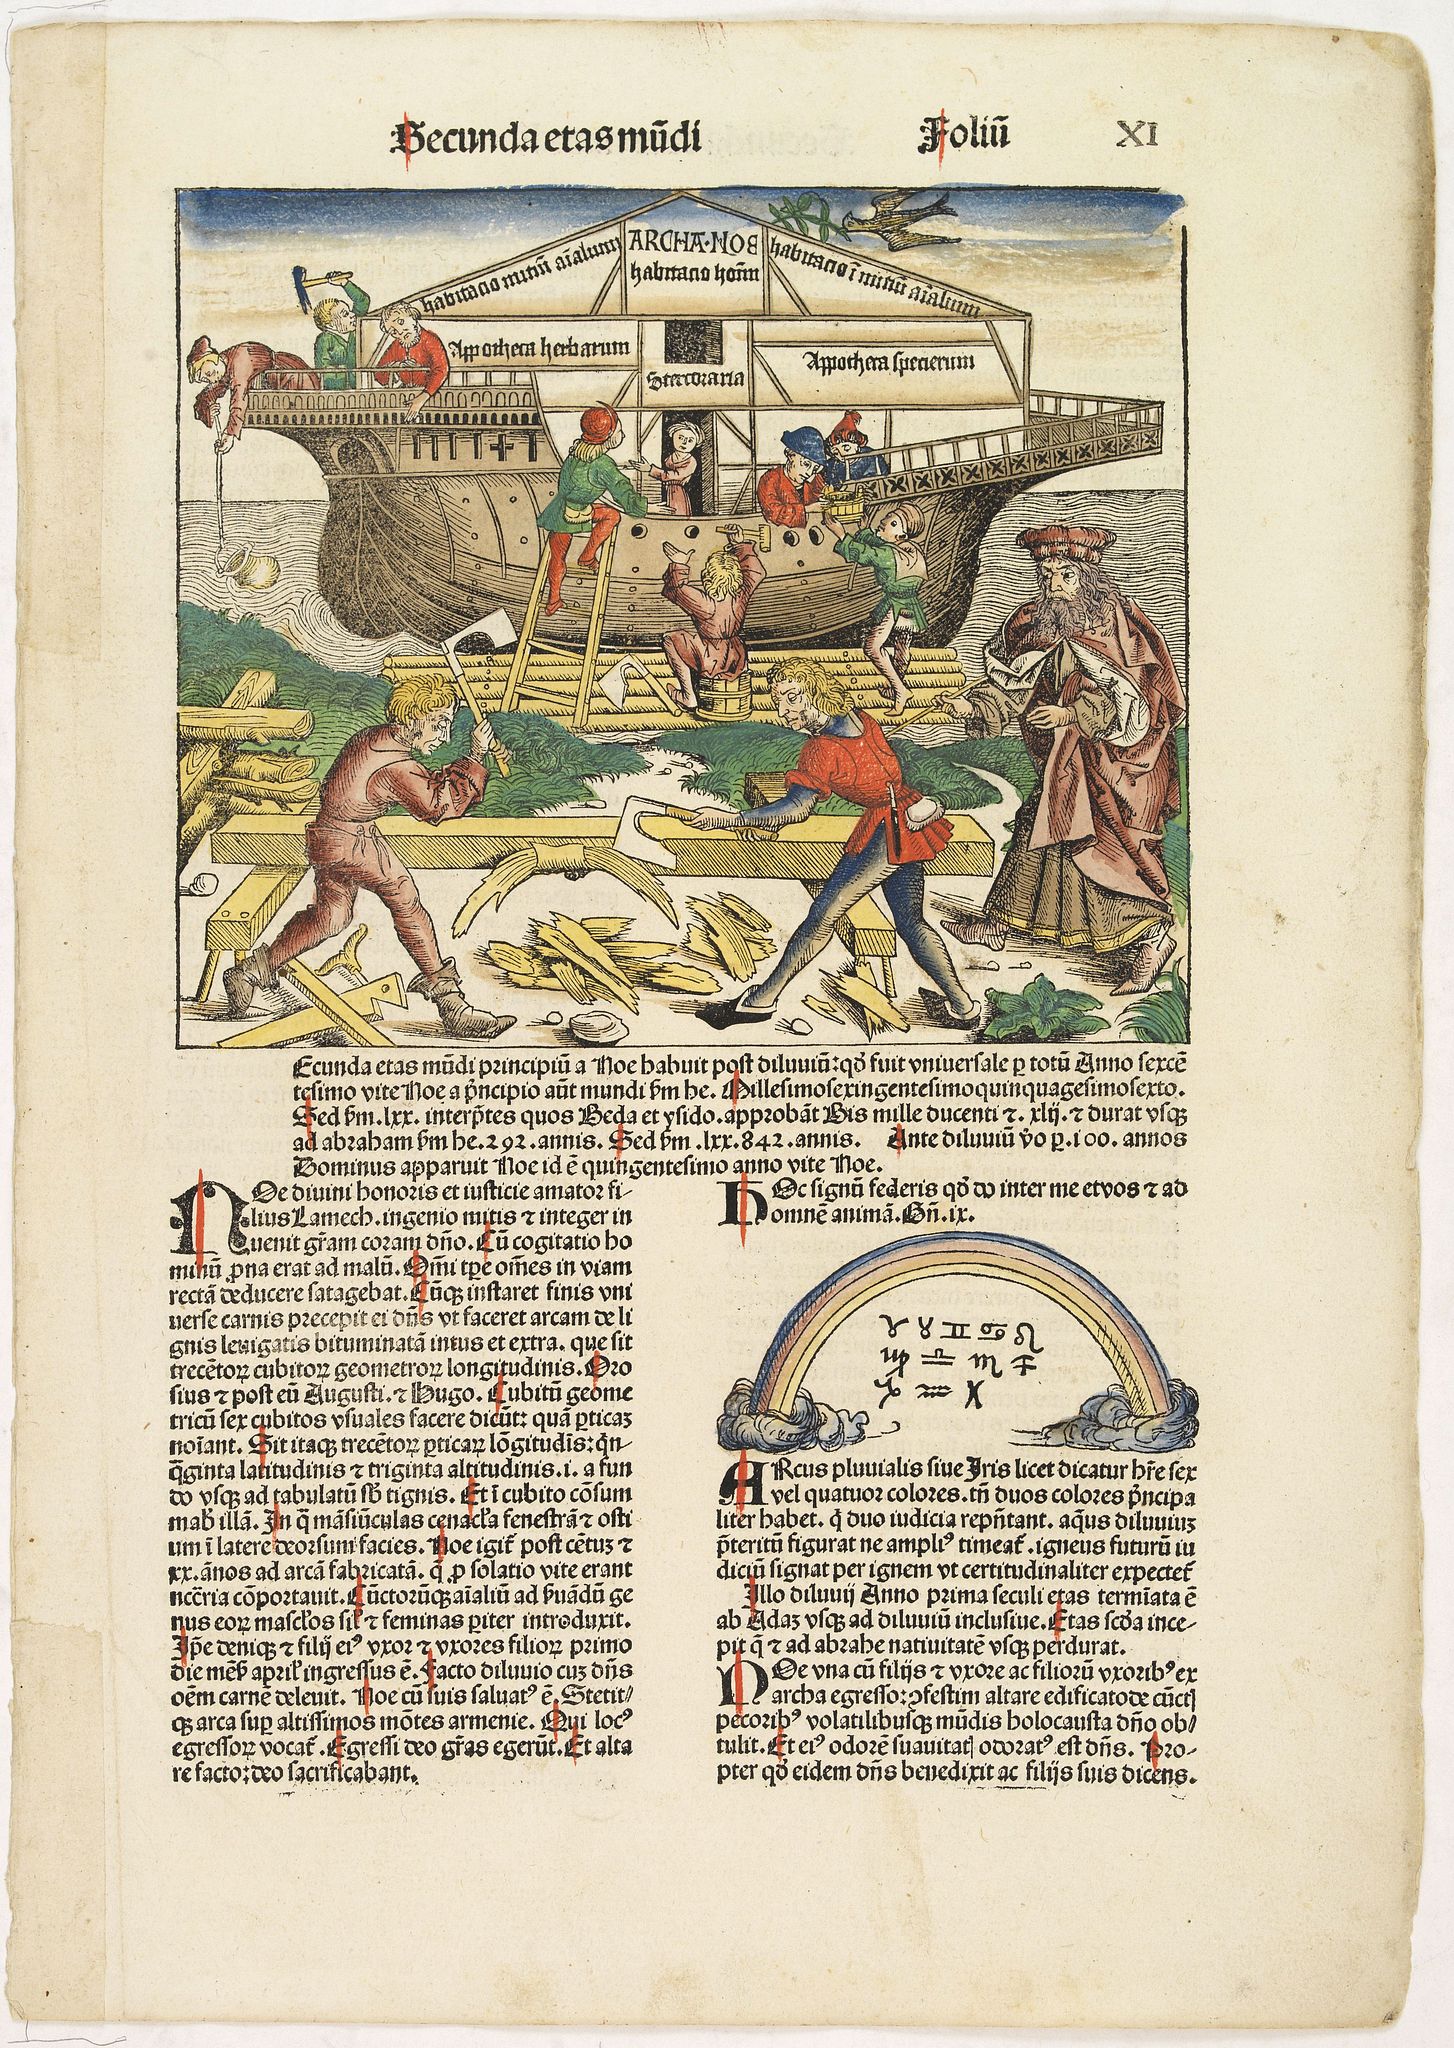 Secunda etas mūdi Foliū XI
ARCHA·NOE
habitacio mitiū aīalium
habitacio hoīm
habitacio īmitiū aīalium
Appotheca herbarum
Stercoraria
Appotheca specierum
Ecunda etas mūdi principiū a Noe habuit post diluuiū: qđ fuit vniuersale ꝑ totū Anno sexcē
tesimo vite Noe a p̄ncipio aūt mundi ẜm he. Millesimosexingentesimoquinquagesimosexto.
Sed ẜm .lxx. interp̄tes quos Beda et ysido. approbāt Bis mille ducenti ⁊ .xlij. ⁊ durat vsꝗ
ad abraham ẜm he. 292. annis. Sed ẜm .lxx. 842. annis. Ante diluuiū v̄o ꝑ. 100. annos
Dominus apparuit Noe id ē quingentesimo anno vite Noe.
NOe diuini honoris et iusticie amator fi-
lius Lamech. ingenio mitis ⁊ integer in
uenit gr̄am coram dn̄o. Cū cogitatio ho
minū ꝓna erat ad malū. Om̄i tꝑe om̄es in viam
rectā deducere satagebat. Cūqꝫ instaret finis vni
uerse carnis precepit ei dn̄s vt faceret arcam de li
gnis leuigatis bituminatā intus et extra. que sit
trecētoꝝ cubitoꝝ geometroꝝ longitudinis. Oro
sius ⁊ post eū Augusti. ⁊ Hugo. Cubitū geome
tricū sex cubitos vsuales facere dicūt: quā ꝑticaꝫ
noīant. Sit itaqꝫ trecētoꝝ ꝑticaꝝ lōgitudīs: qn̄-
q̄ginta latitudinis ⁊ triginta altitudinis .i. a fun
do vsqꝫ ad tabulatū sb̄ tignis. Et ī cubito cōsum
mab̓ illā. In q̄ māsiūculas cenacl̓a fenestrā ⁊ osti
um ī latere deorsum facies. Noe igit̄ post cētuꝫ ⁊
xx. ānos ad arcā fabricatā. q̄ ꝓ solatio vite erant
nccr̄ia cōportauit. Cūctorūqꝫ aīaliū ad ẜuādū ge
nus eoꝝ mascl̓os sil̓ ⁊ feminas ꝑiter introduxit.
Ip̄e deniqꝫ ⁊ filij eiꝰ vxor ⁊ vxores filioꝝ primo
die mēẜ april̓ ingressus ē. Facto diluuio cuꝫ dn̄s
oēm carnē deleuit. Noe cū suis saluatꝰ ē. Stetit-
qꝫ arca suꝑ altissimos mōtes armenie. Qui locꝰ
egressoꝝ vocat̄. Egressi deo gr̄as egerūt. Et alta
re facto: deo sacrificabant.
HOc signū federis qđ do inter me et vos ⁊ ad
omnē animā. Gn̄. ix.
♈ ♉ ♊ ♋ ♌
♍ ♎ ♏ ♐
♑ ♒ ♓
ARcus pluuialis siue Iris licet dicatur hr̄e sex
vel quatuor colores. tn̄ duos colores p̄ncipa
liter habet. q̄ duo iudicia rep̄ntant. aqueꝰ diluuiuꝫ
p̄teritū figurat ne ampliꝰ timeat̄. igneus futurū iu
diciū signat per ignem vt certitudinaliter expectet̄
Illo diluuij Anno prima seculi etas termīata ē
ab Adaꝫ vsqꝫ ad diluuiū inclusiue. Etas scḋa ince-
pit q̄ ⁊ ad abrahe natiuitatē vsqꝫ perdurat.
NOe vna cū filijs ⁊ vxore ac filiorū vxoribꝰ ex
archa egresso: ꝯfestim altare edificato de cūctꝭ
pecoribꝰ volatilibusqꝫ mūdis holocausta dn̄o ob-
tulit. Et eiꝰ odorē suauitatꝭ odoratꝰ est dn̄s. Pro-
pter qđ eidem dn̄s benedixit ac filijs suis dicens.